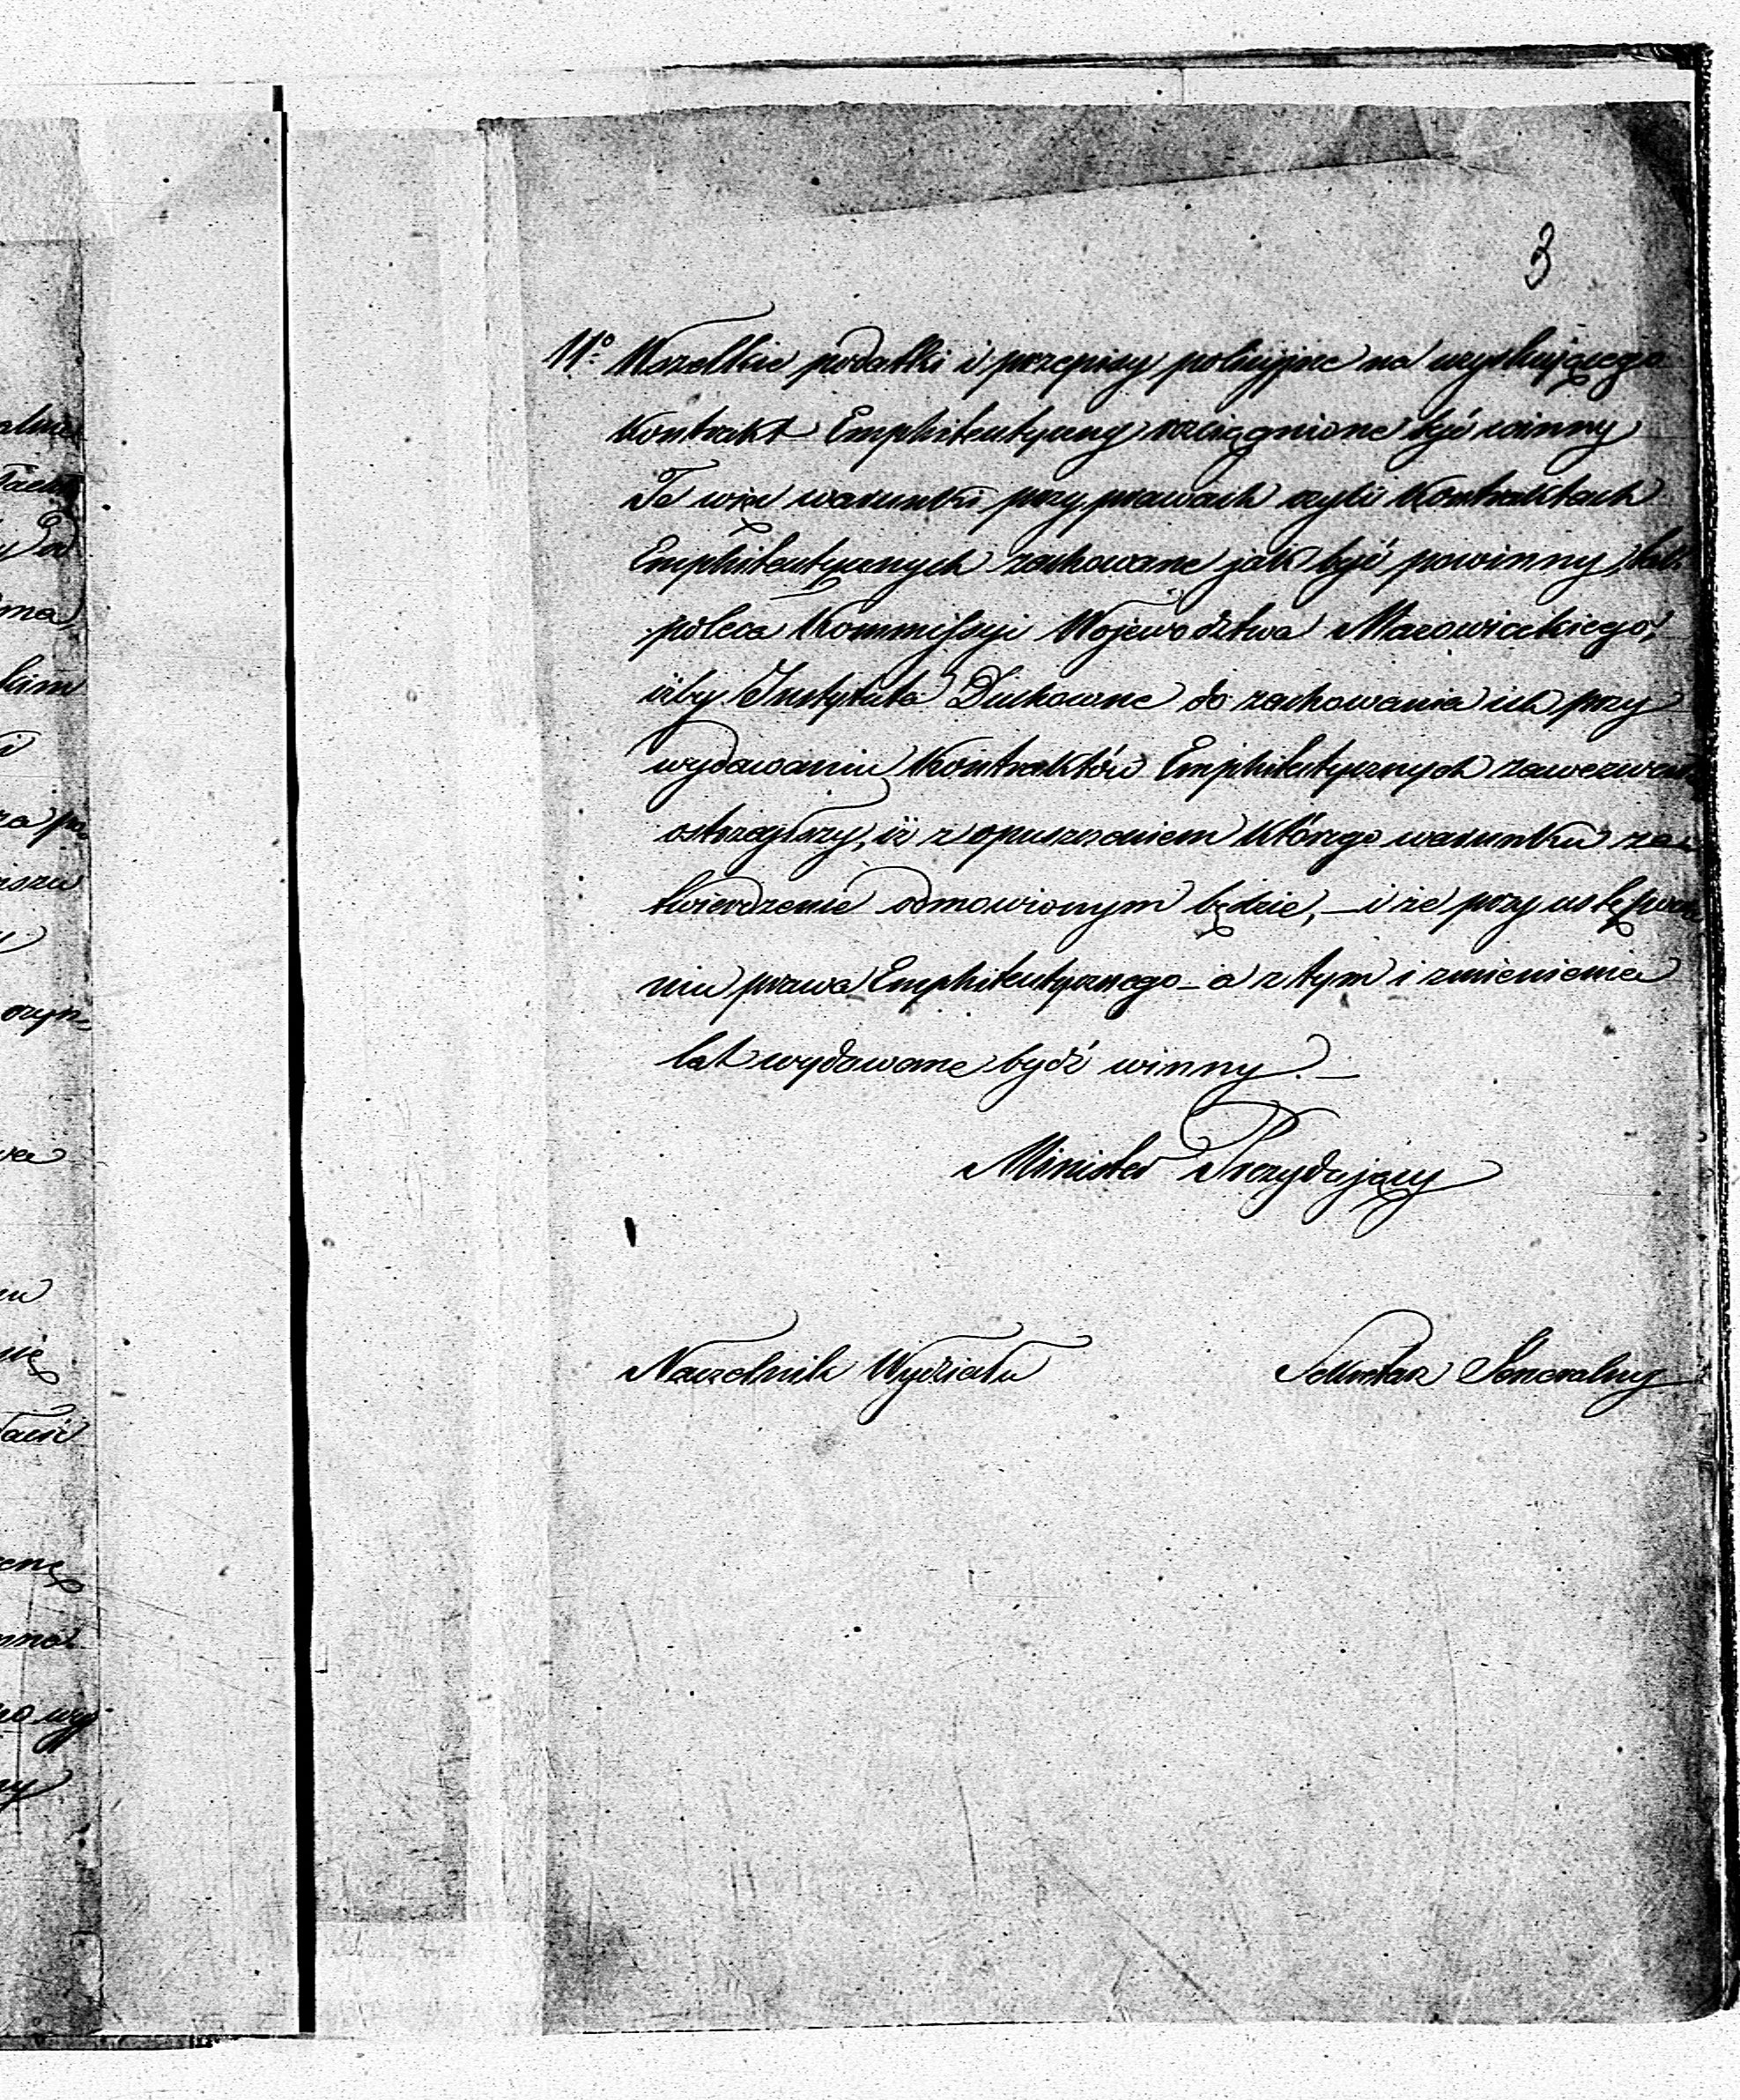 3
11° Wszelkie podatki i przepisy policyjne na wyskującego
Kontrakt Emphiteutyczny rozciągnione być winny
Te więc warunki przy prawach czyli Kontraktach
Emphiteutycznych zachowane jak być powinny, tak
poleca Kommissyi Województwa Mazowieckiego,
iżby Instytuta Duchowne do zachowania ich przy
wydawaniu Kontraktów Emphiteutycznych zawezwała
ostrzegłszy, iż z opuszczeniem którego warunku za
twierdzenie odmowionym będzie, – i że przy ustępowa
niu prawa Emphiteutycznego – a z tym i zmienienia
lat wydawane bydź winny. –
Minister Prezydujący
Naczelnik Wydziału
Sekretarz Generalny